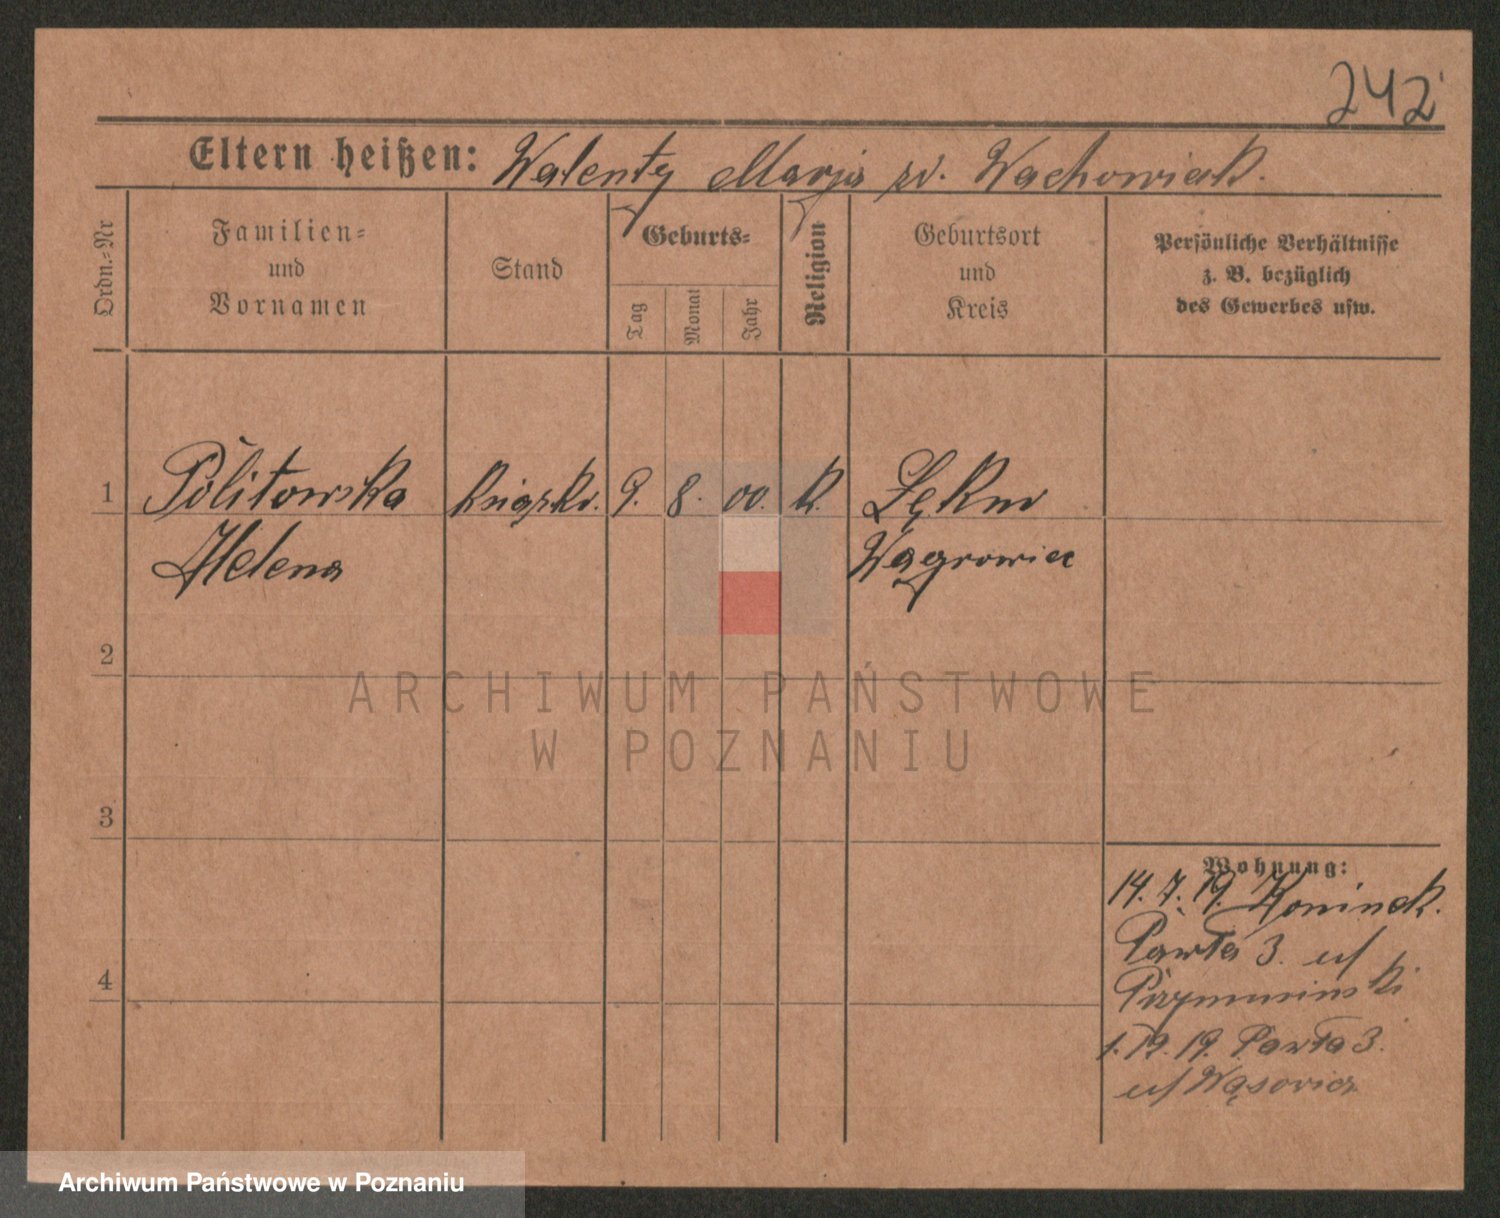 242
Eltern heißen: Walenty Marja zd. Wachowiak.
Ordn.-Nr
Familien-
und
Vornamen
Stand
Geburts-
Tag
Monat
Jahr
Religion
Geburtsort
und
Kreis
Persönliche Verhältnisse
z. B. bezüglich
des Gewerbes usw.
1
Politowska
Helena
9. 8. 00. k.
Łękno
Wągrowiec
2
3
4
Wohnung:
14. 7. 19. Koninek.
Pawła 3. u/
1. 12. 19. Pawła 3.
u/ Wąsowicz
ARCHIWUM PAŃSTWOWE
W POZNANIU
Archiwum Państwowe w Poznaniu